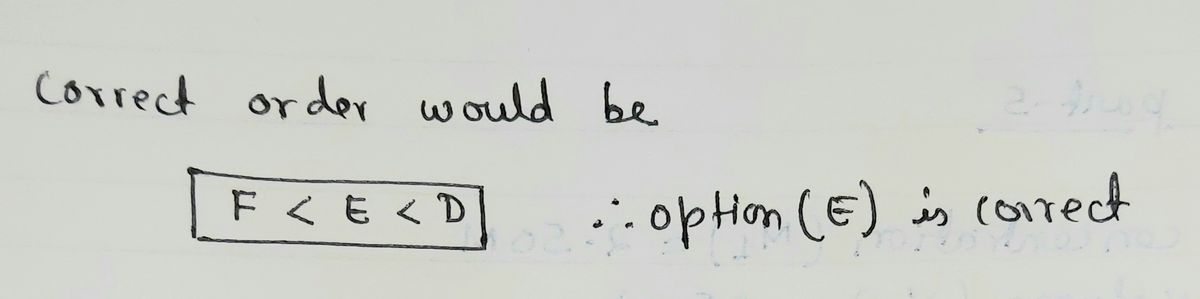 correct order would be
F < E < D ∴ option (E) is correct